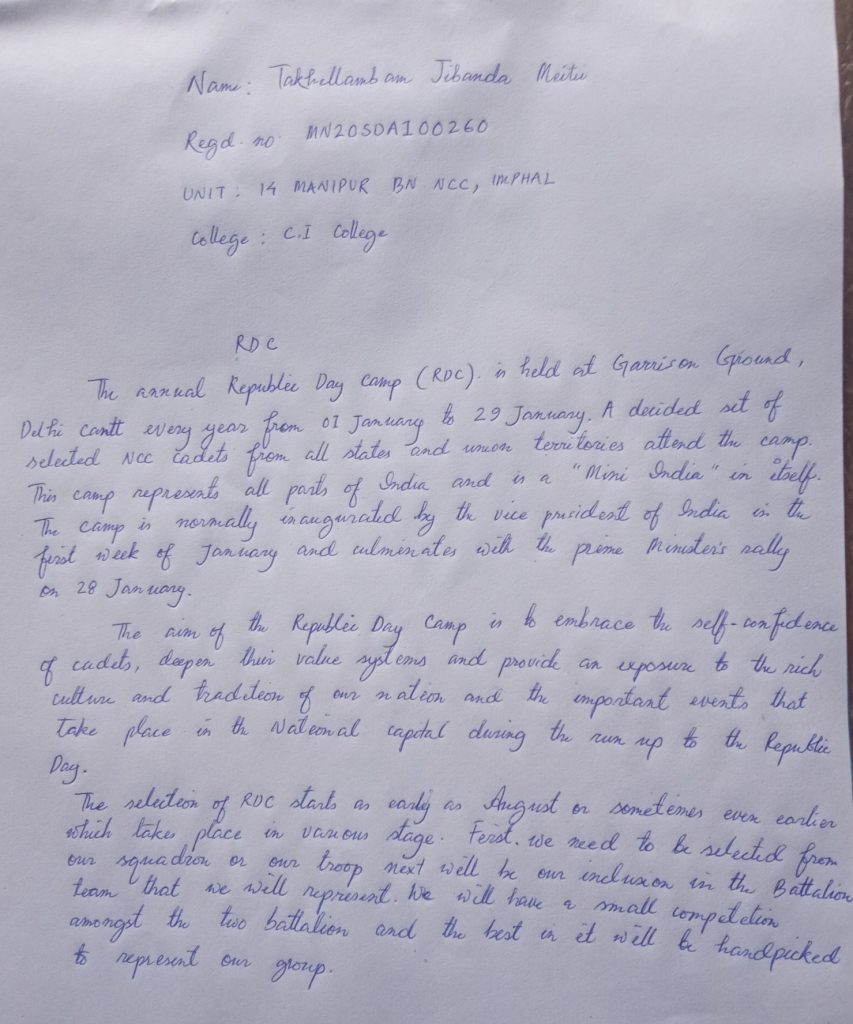 Name: Takhellambam Jibanda Meitei
Regd. no. MN20SDA100260
UNIT: 14 MANIPUR BN NCC, IMPHAL
College: C.I College
RDC
The annual Republic Day Camp (RDC). is held at Garrison Ground,
Delhi cantt every year from 01 January to 29 January. A decided set of
selected NCC cadets from all states and union territories attend the camp.
This camp represents all parts of India and is a "Mini India" in itself.
The camp is normally inaugurated by the vice president of India in the
first week of January and culminates with the prime Minister's rally
on 28 January.
The aim of the Republic Day Camp is to embrace the self-confidence
of cadets, deepen their value systems and provide an exposure to the rich
culture and tradition of our nation and the important events that
take place in the National capital during the run up to the Republic
Day.
The selection of RDC starts as early as August or sometimes even earlier
which takes place in various stage. First, we need to be selected from
our squadron or our troop next will be our inclusion in the Battalion
team that we will represent. We will have a small competetion
amongst the two battalion and the best in it will be handpicked
to represent our group.